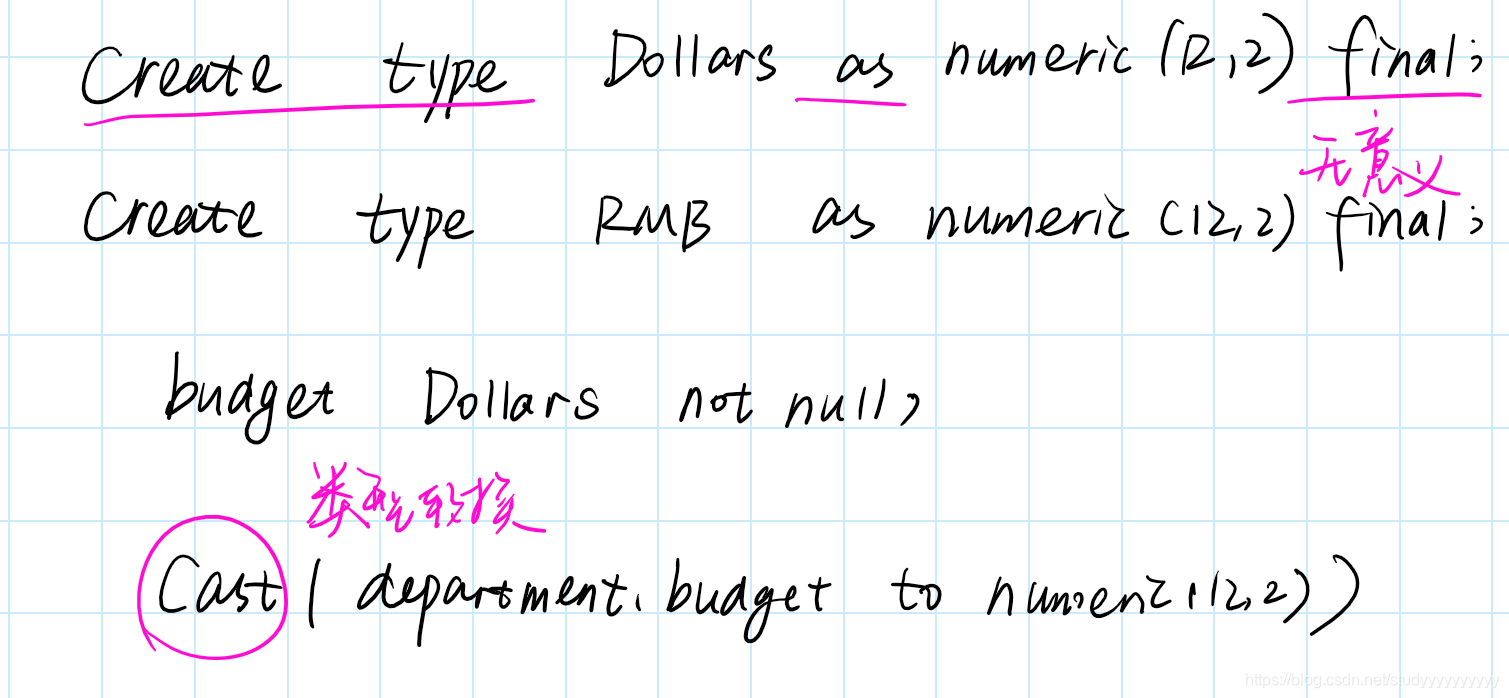 Create type Dollars as numeric (12,2) final;
无意义
Create type RMB as numeric (12,2) final;
budget Dollars not null,
类型转换
Cast( department.budget to numeric(12,2))
https://blog.csdn.net/studyyyyyyyyyy